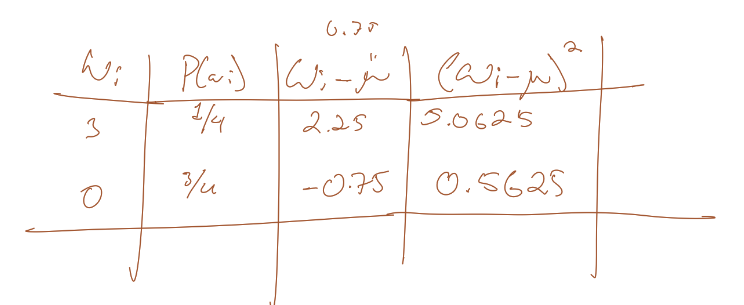 0.75
ωi P(ωi) ωi-μ (ωi-μ)²
3 1/4 2.25 5.0625
0 3/4 -0.75 0.5625